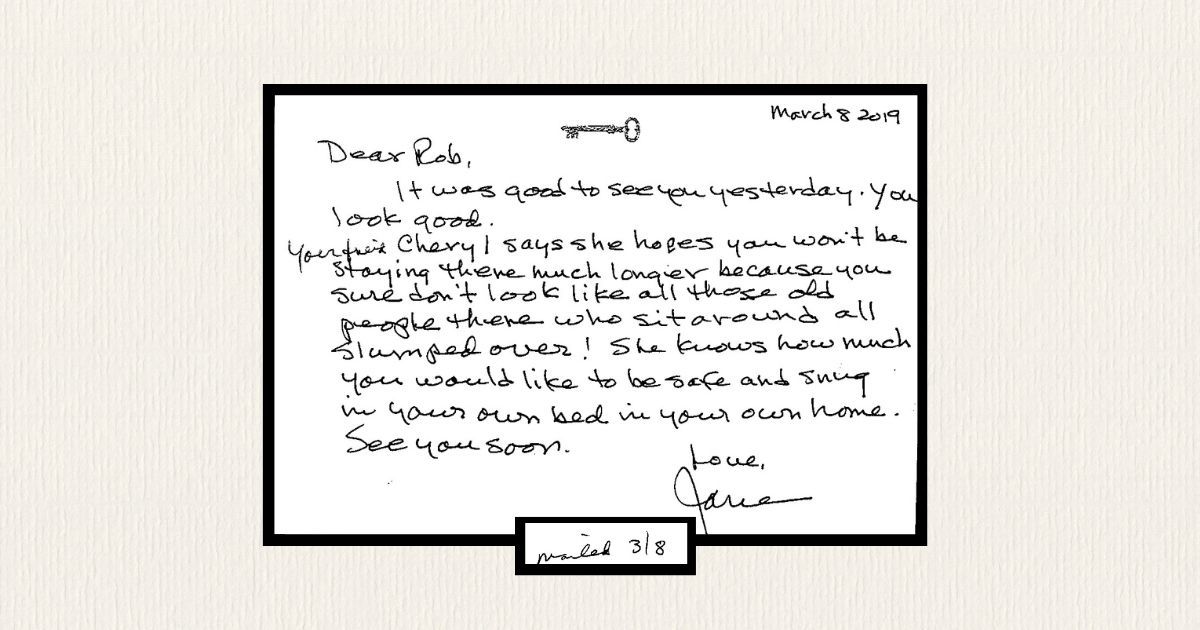 March 8 2019
Dear Rob,
It was good to see you yesterday. You
look good.
Your Cheryl says she hopes you won't be
staying there much longer because you
sure don't look like all those old
people there who sit around all
slumped over! She knows how much
you would like to be safe and snug
in your own bed in your own home.
See you soon.
Love,
Jane
mailed 3/8